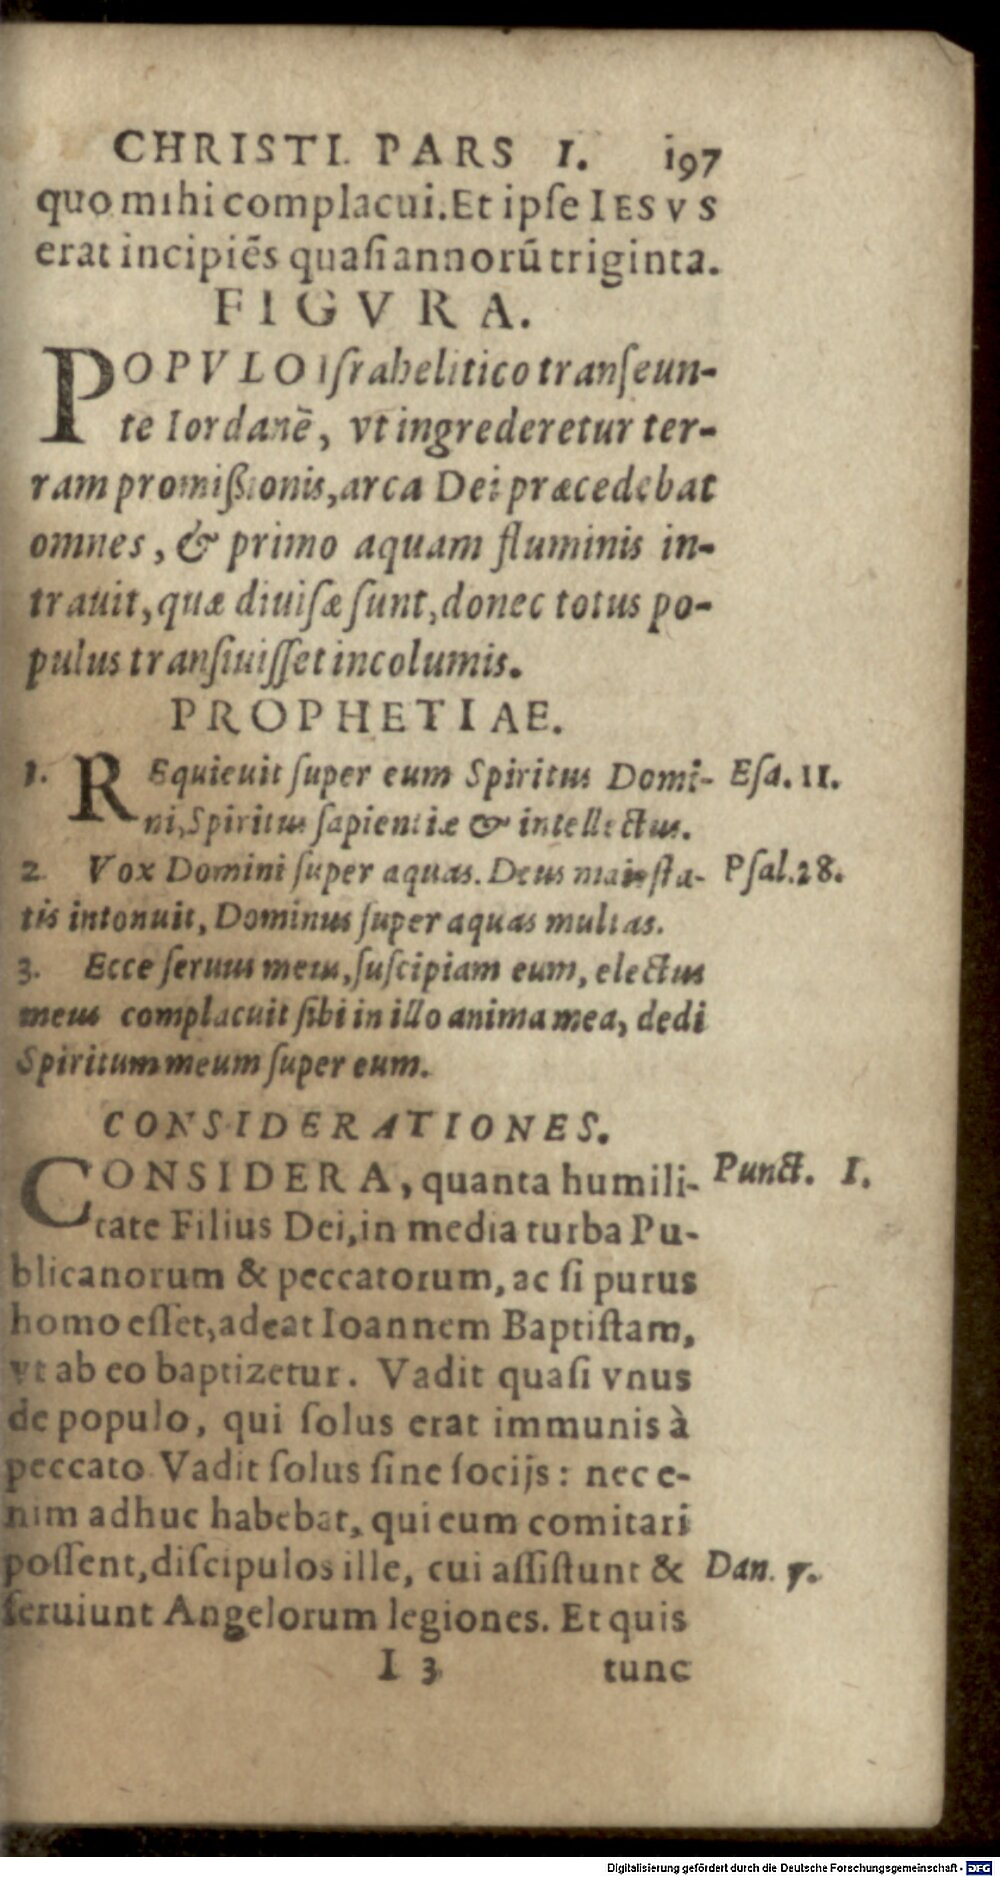 CHRISTI. PARS I. 197
quo mihi complacui. Et ipſe IESVS
erat incipiēs quaſi annorū triginta.
FIGVRA.
POPVLO Iſrahelitico tranſeun-
te Iordanē, vt ingrederetur ter-
ram promiſsionis, arca Dei præcedebat
omnes, & primo aquam fluminis in-
trauit, quæ diuiſæ ſunt, donec totus po-
pulus tranſiuiſſet incolumis.
PROPHETIAE.
1. REquieuit ſuper eum Spiritus Domi- Eſa. 11.
ni, Spiritus ſapientiæ & intellectus.
2. Vox Domini ſuper aquas. Deus maieſta- Pſal. 28.
tis intonuit, Dominus ſuper aquas multas.
3. Ecce ſeruus meus, ſuſcipiam eum, electus
meus complacuit ſibi in illo anima mea, dedi
Spiritum meum ſuper eum.
CONSIDERATIONES.
CONSIDERA, quanta humili- Punct. I.
tate Filius Dei, in media turba Pu-
blicanorum & peccatorum, ac ſi purus
homo eſſet, adeat Ioannem Baptiſtam,
vt ab eo baptizetur. Vadit quaſi vnus
de populo, qui ſolus erat immunis à
peccato. Vadit ſolus ſine ſocijs: nec e-
nim adhuc habebat, qui eum comitari
poſſent, diſcipulos ille, cui aſſiſtunt & Dan. 7.
ſeruiunt Angelorum legiones. Et quis
I 3 tunc
Digitalisierung gefördert durch die Deutsche Forschungsgemeinschaft - DFG